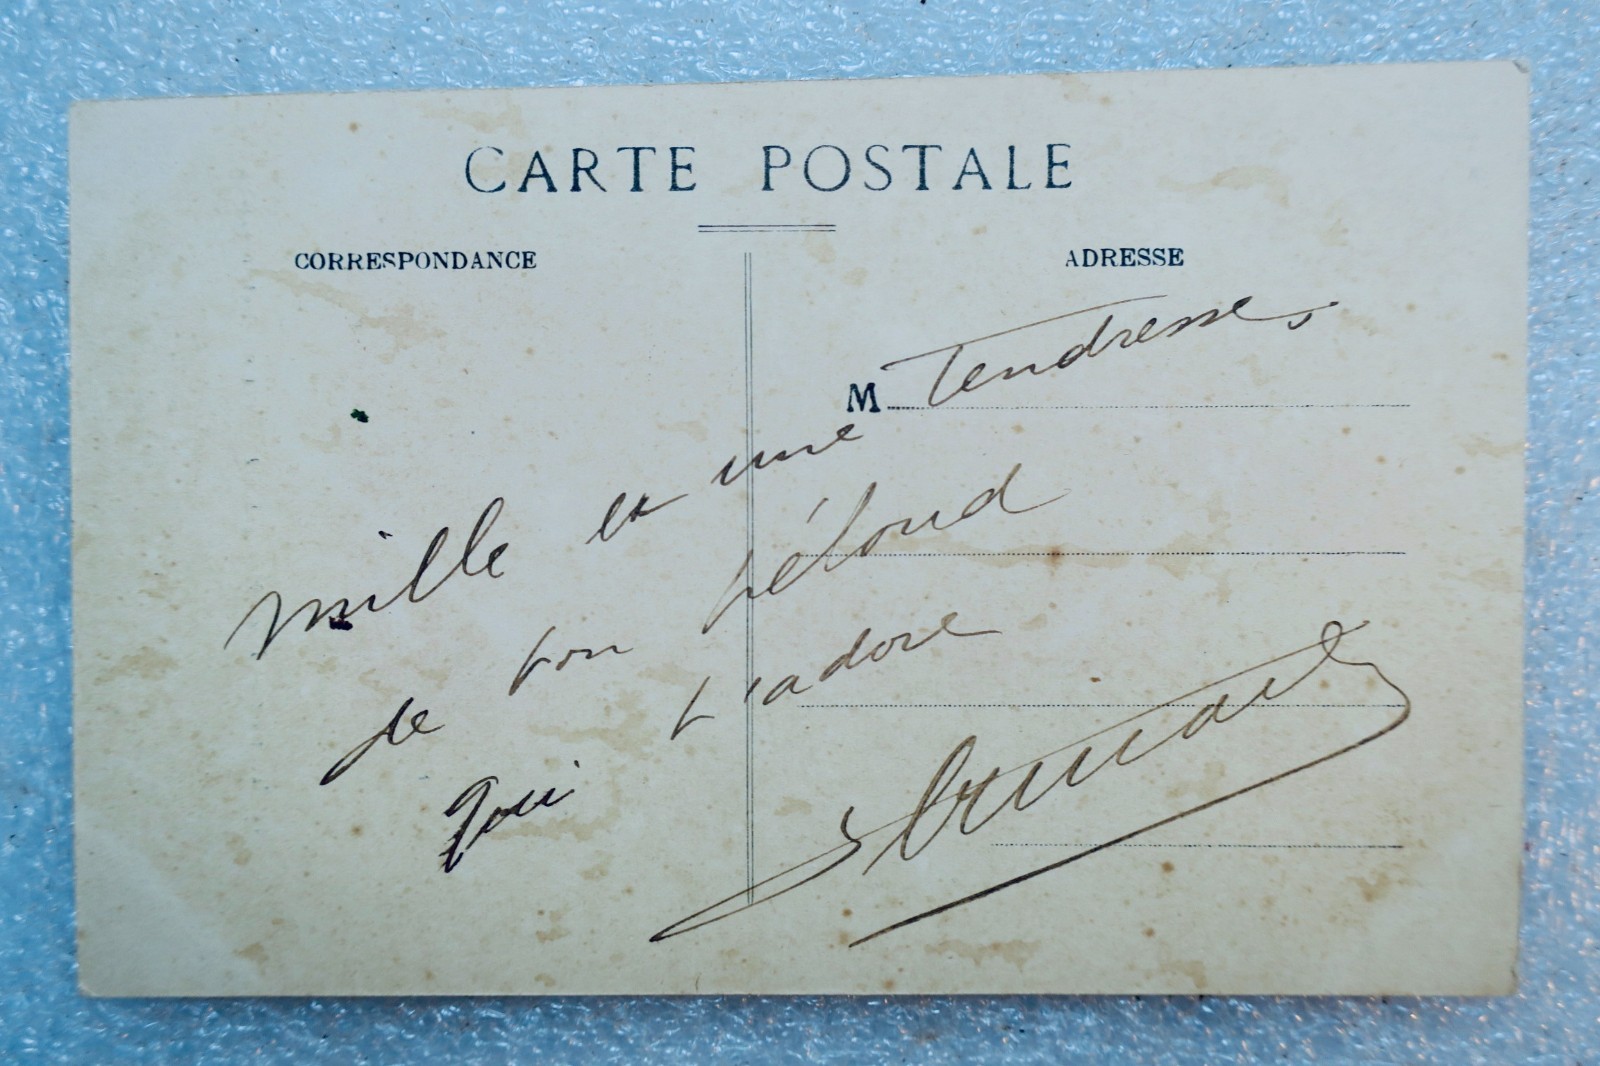 CARTE POSTALE
CORRESPONDANCE
ADRESSE
M
mille et une Tendresses
de ton
qui t'adore